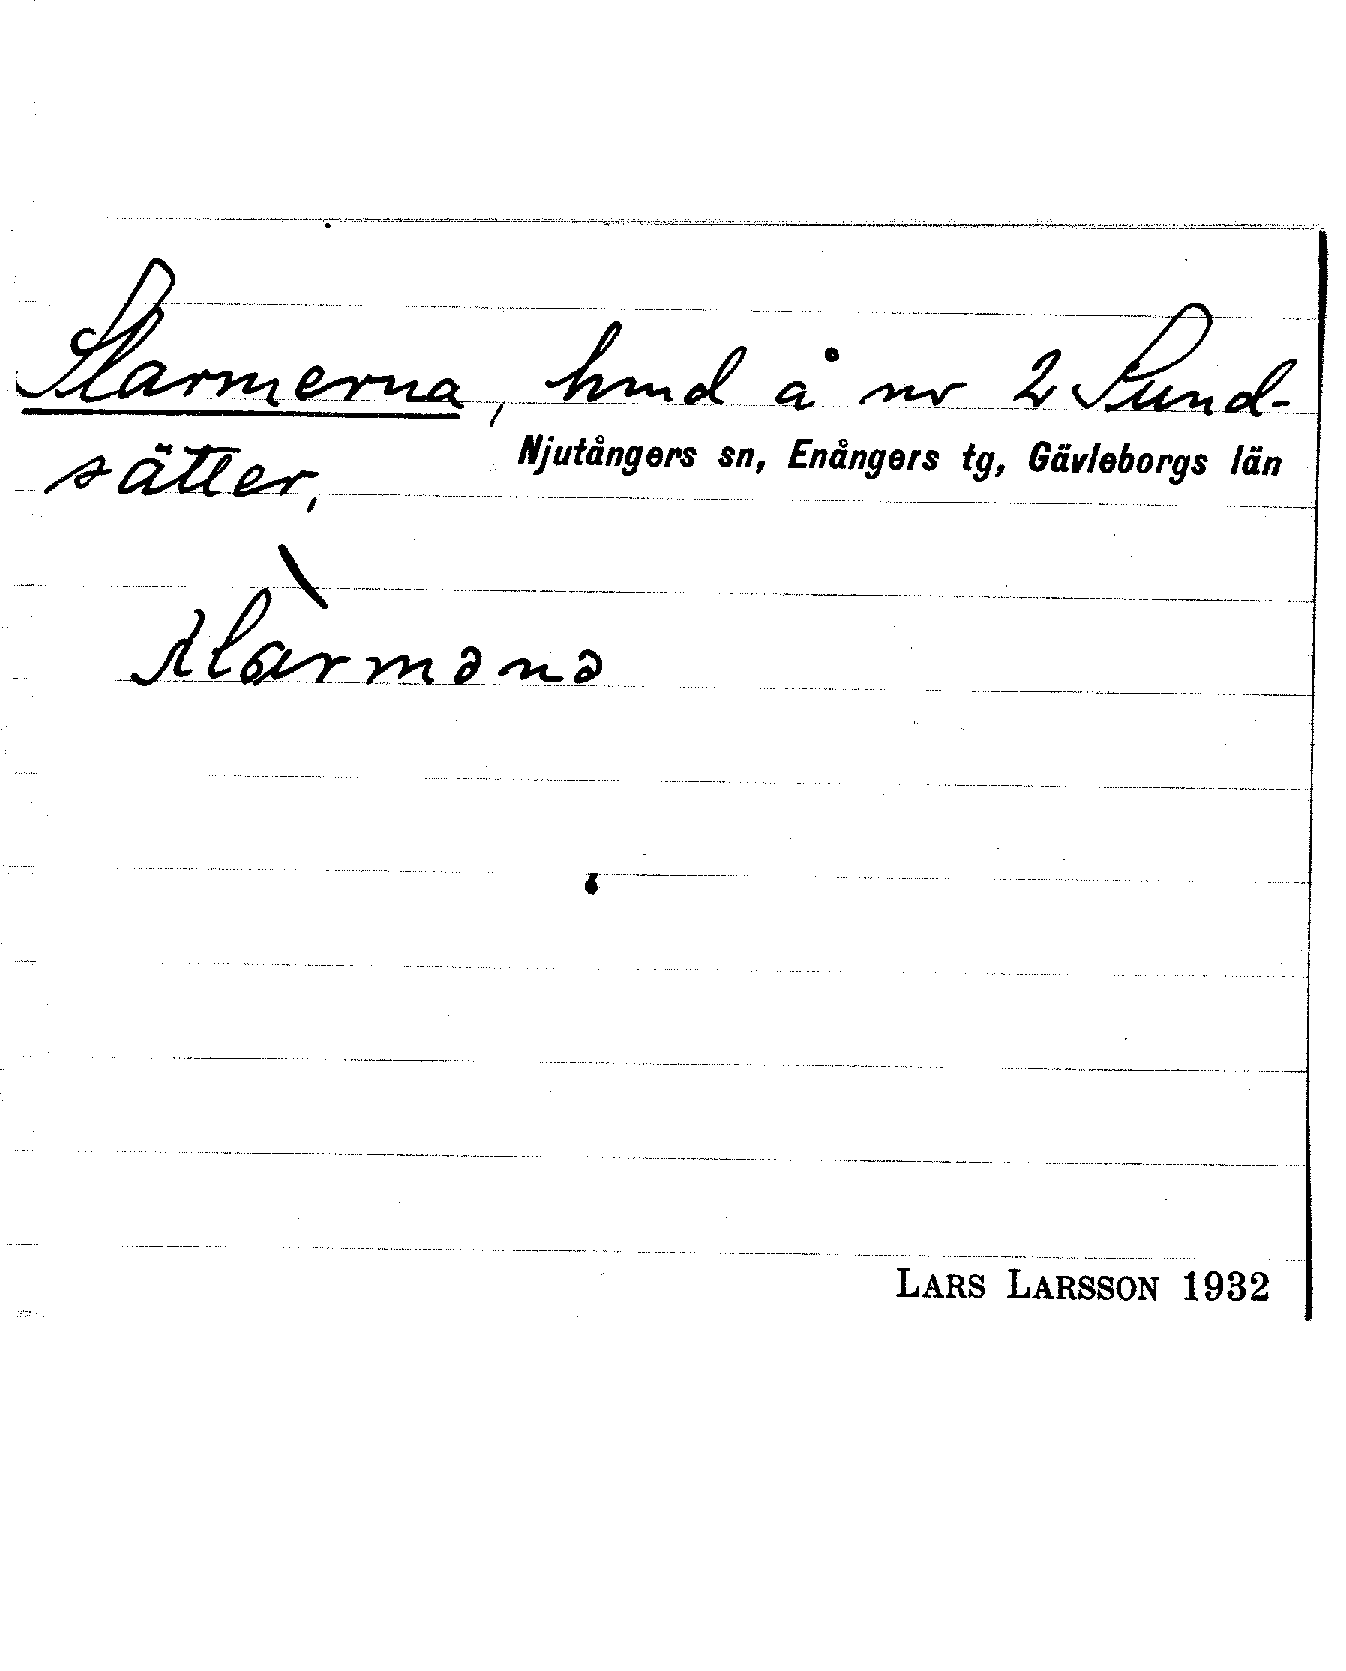 Slarmerna, hmd å nr 2 Sund-
sätter,
Njutångers sn, Enångers tg, Gävleborgs län
LARS LARSSON 1932